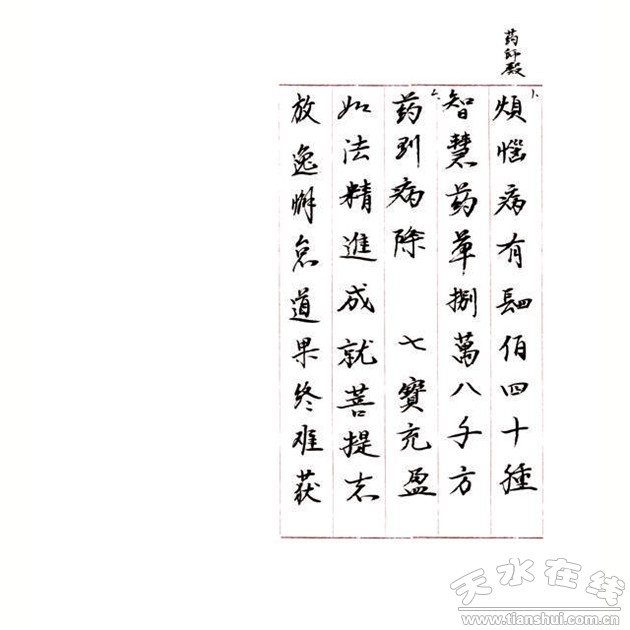 药师殿
煩惱病有䦉佰四十種
智慧药草捌萬八千方
药到病除 七寶充盈
如法精進成就菩提志
放逸懈怠道果终难获
天水在线
www.tianshui.com.cn